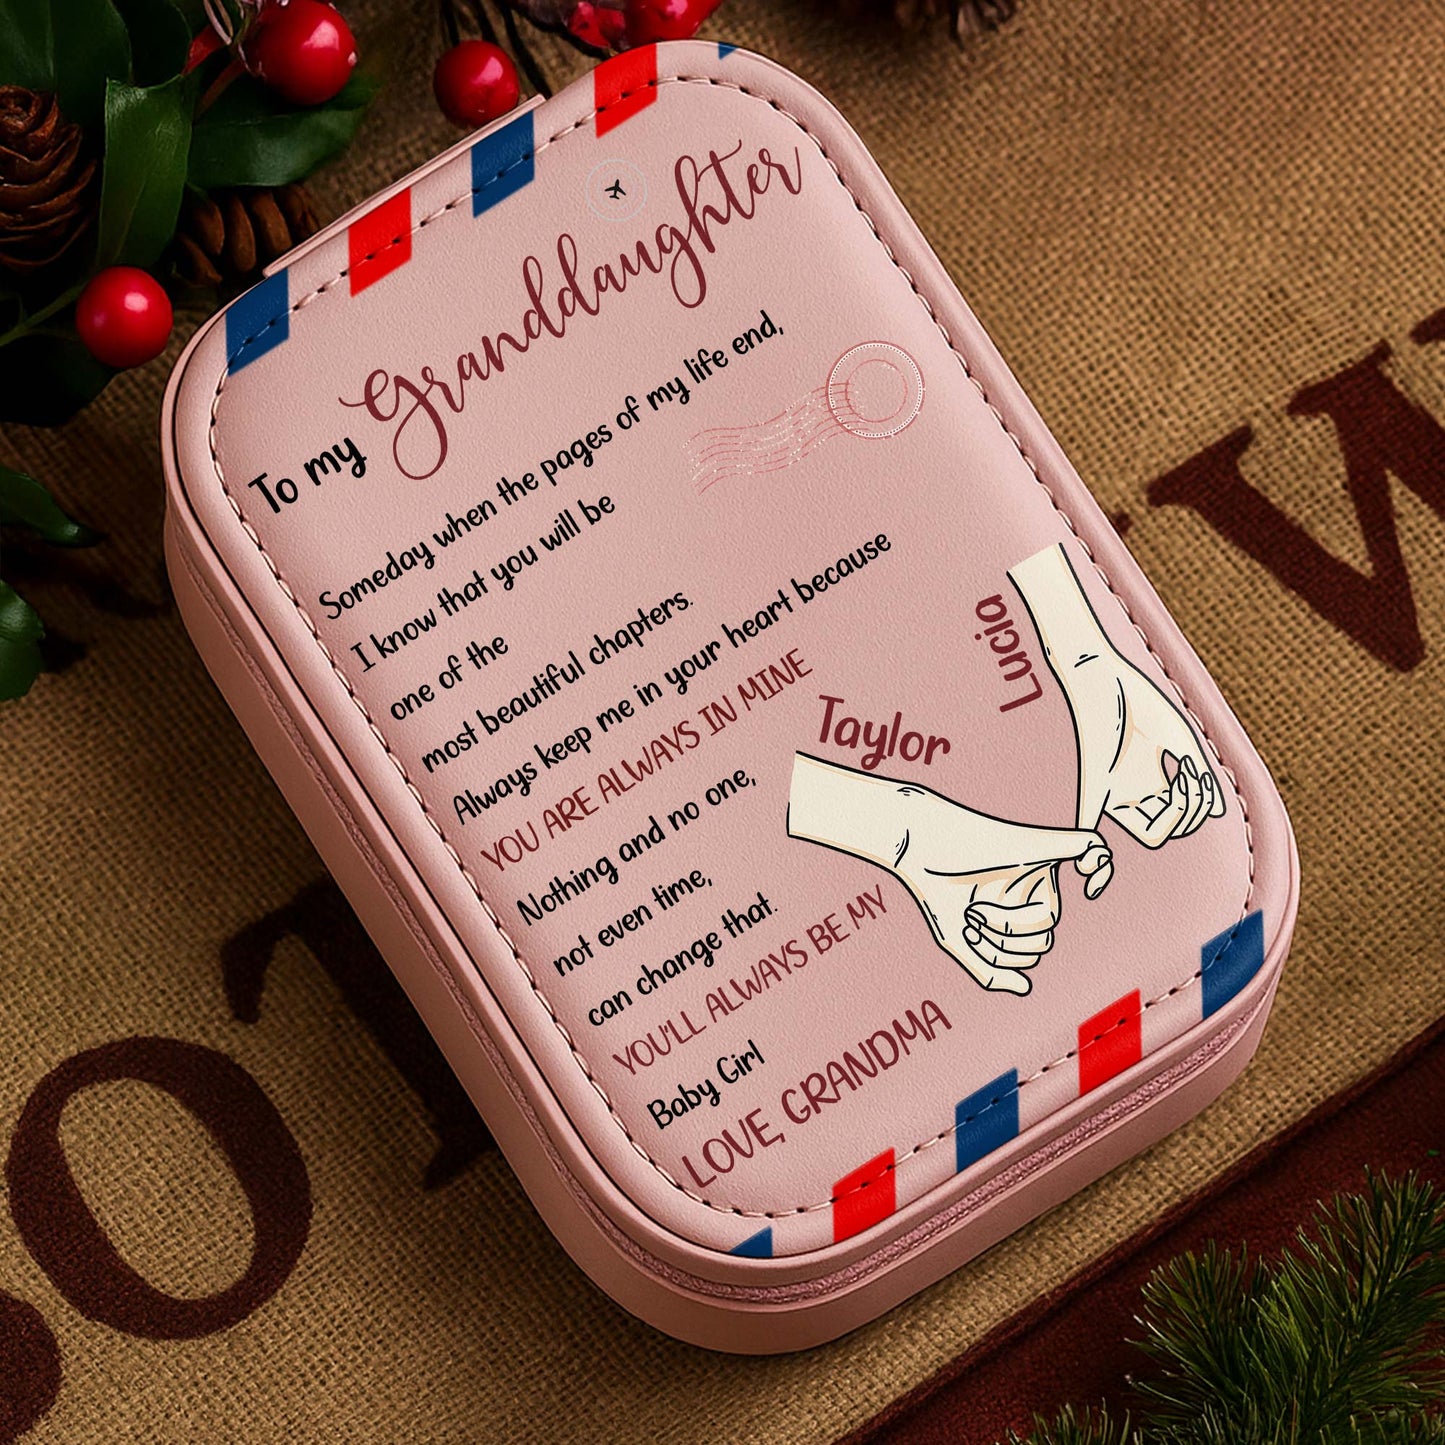 To my Granddaughter
Someday when the pages of my life end,
I know that you will be
one of the
most beautiful chapters.
Always keep me in your heart because
YOU ARE ALWAYS IN MINE
Nothing and no one,
not even time,
can change that.
YOU'LL ALWAYS BE MY
Baby Girl
LOVE, GRANDMA
Taylor
Lucia